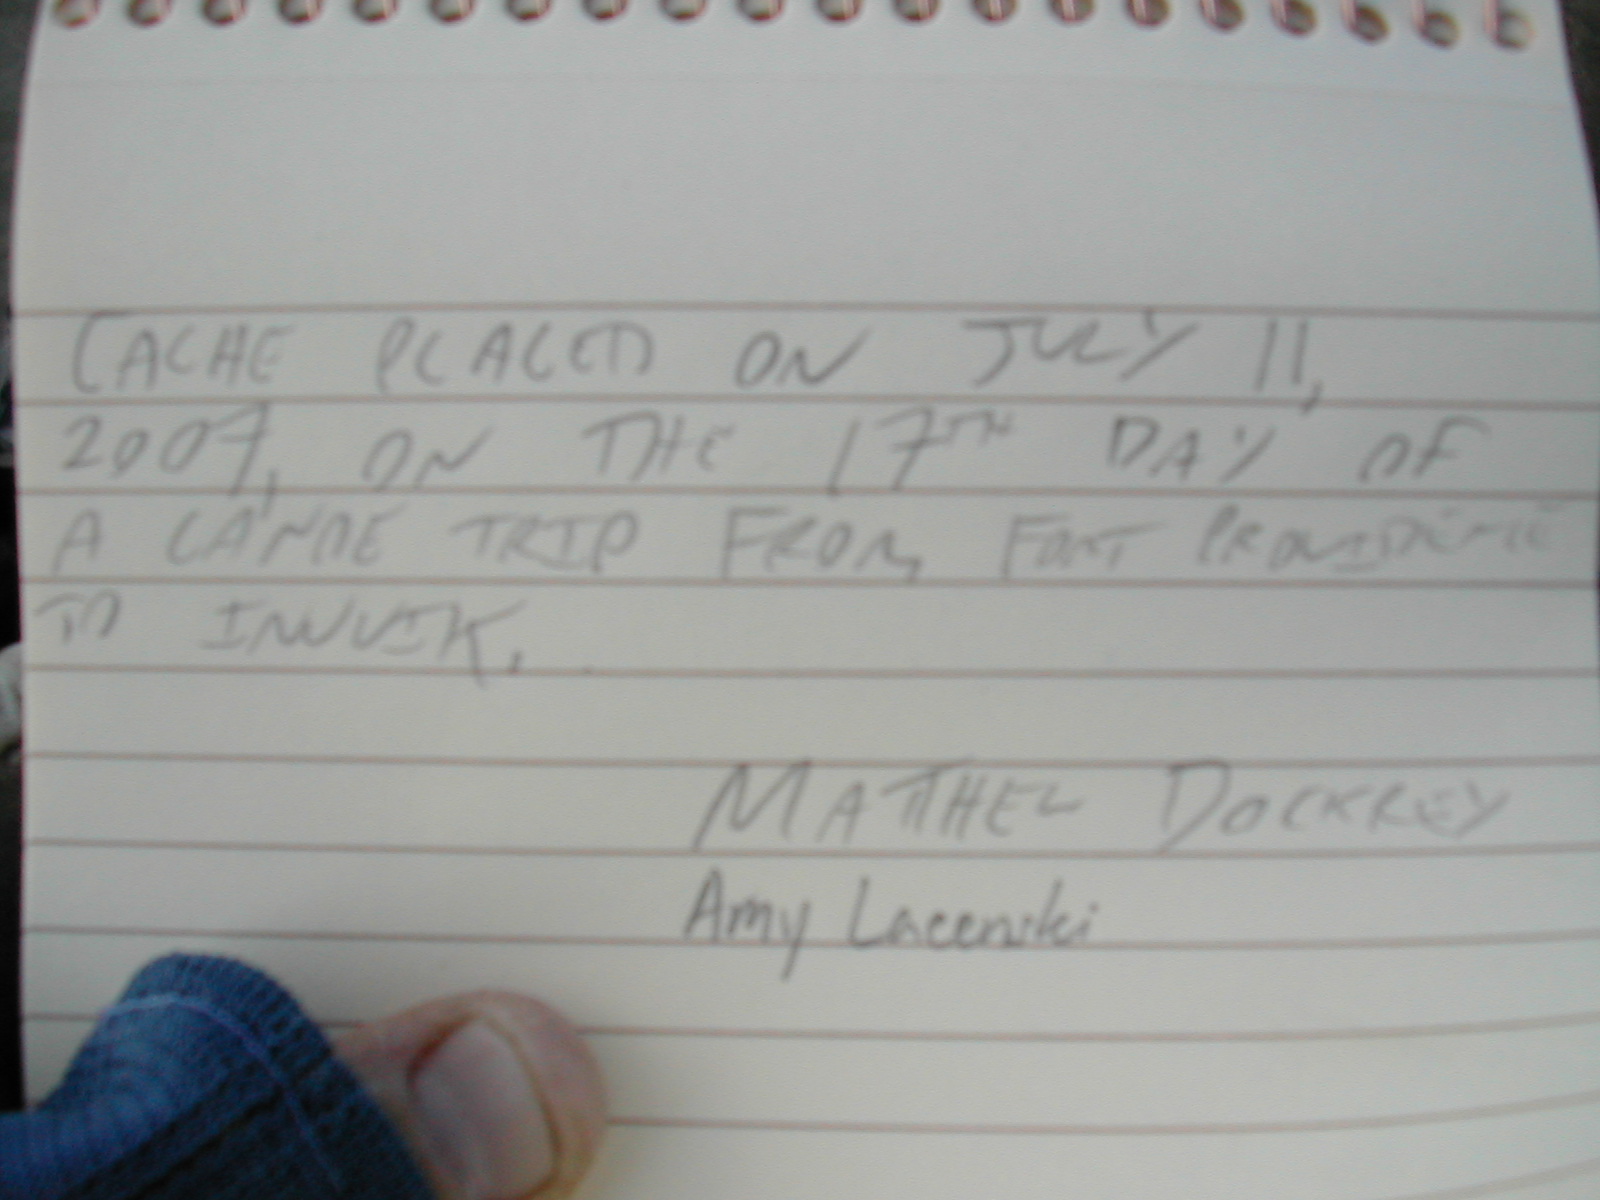 CACHE PLACED ON JULY 11,
2007, ON THE 17TH DAY OF
A CANOE TRIP FROM FORT PROVIDENCE
TO INUVIK.
MATTHEW DOCKREY
Amy Lacenski